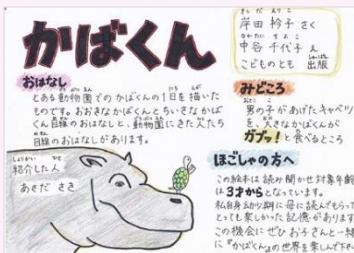 かばくん
岸田 衿子 さく
中谷 千代子 え
こどものとも 出版
おはなし
とある動物園でのかばくんの1日を描いた
ものです。おおきなかばくんとちいさなかば
くん目線のおはなしと、動物園にきた人たち
目線のおはなしがあります。
みどころ
男の子があげたキャベツ
を、大きなかばくんが
ガブッ!と食べるところ
紹介した人
あさだ さき
ほごしゃの方へ
この絵本は読み聞かせ対象年齢
は3才からとなっています。
私自身幼少期に母に読んでもらって
とっても楽しかった記憶があります
この機会にぜひお子さんと一緒
に『かばくん』の世界を楽しんで下さ